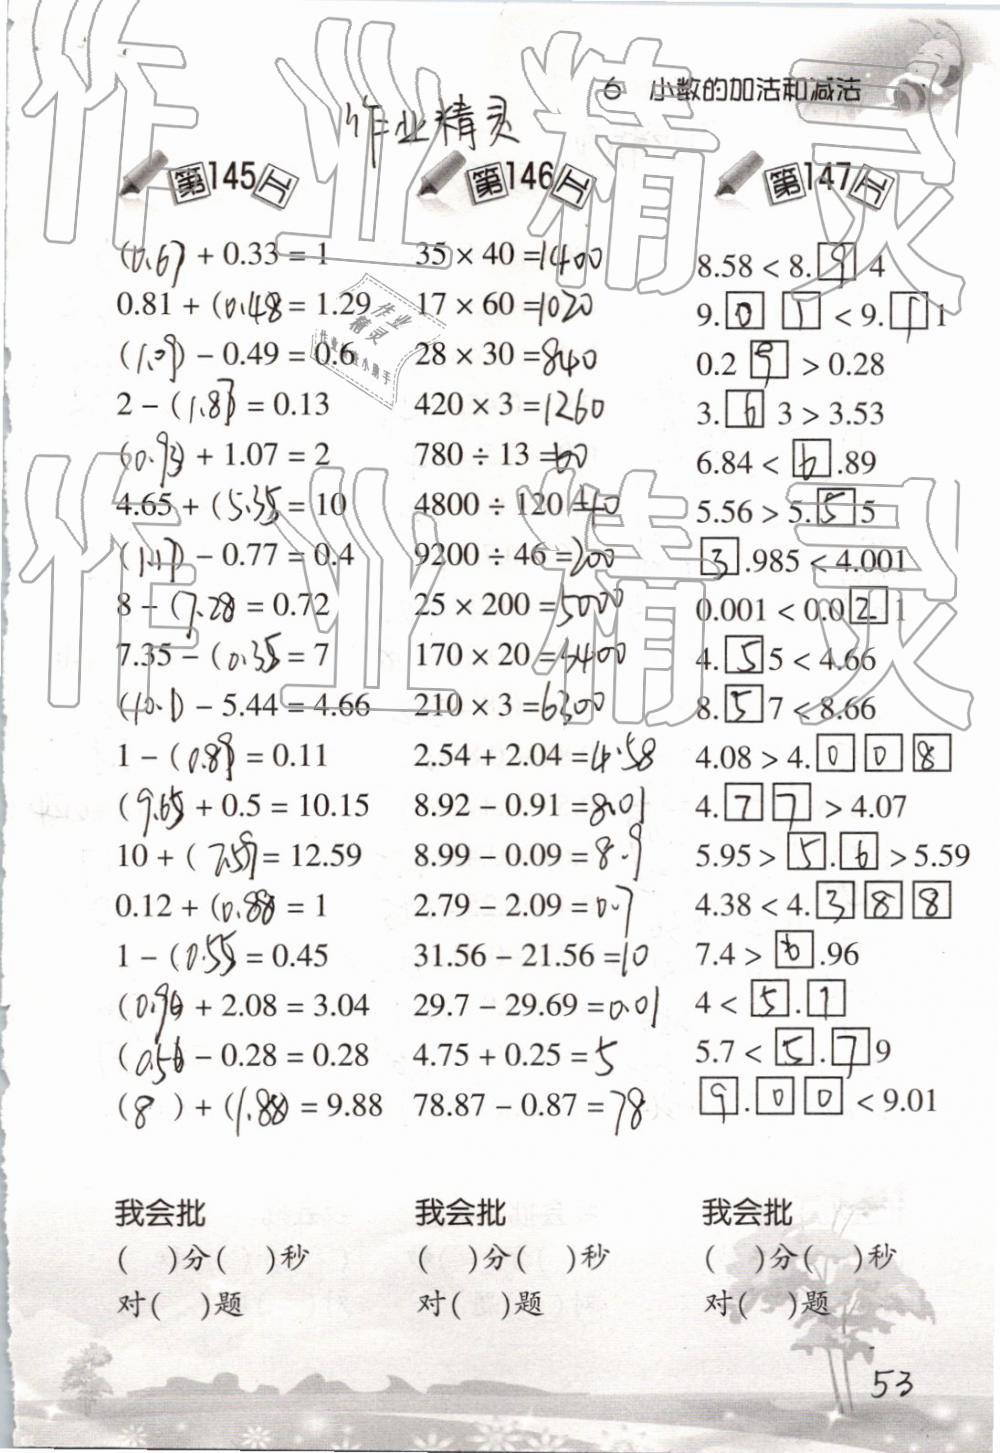 6 小数的加法和减法
作业精灵
第145天
(0.67) + 0.33 = 1
0.81 + (0.48 = 1.29
(1.09) − 0.49 = 0.6
2 − (1.87) = 0.13
(0.93) + 1.07 = 2
4.65 + (5.35 = 10
(1.17) − 0.77 = 0.4
8 − (7.28 = 0.72
7.35 − (0.35 = 7
(10.1) − 5.44 = 4.66
1 − (0.89) = 0.11
(9.65 + 0.5 = 10.15
10 + (2.59) = 12.59
0.12 + (0.88 = 1
1 − (0.55 = 0.45
(0.96 + 2.08 = 3.04
(0.56 − 0.28 = 0.28
(8 ) + (1.88) = 9.88
我会批
( )分( )秒
对( )题
第146天
35 × 40 =1400
17 × 60 =1020
28 × 30 =840
420 × 3 =1260
780 ÷ 13 =60
4800 ÷ 120 =40
9200 ÷ 46 =200
25 × 200 =5000
170 × 20 =3400
210 × 3 =6300
2.54 + 2.04 =4.58
8.92 − 0.91 =8.01
8.99 − 0.09 =8.9
2.79 − 2.09 =0.7
31.56 − 21.56 =10
29.7 − 29.69 =0.01
4.75 + 0.25 =5
78.87 − 0.87 =78
我会批
( )分( )秒
对( )题
第147天
8.58 < 8.9 4
9.0 1 < 9.1 1
0.2 9 > 0.28
3.6 3 > 3.53
6.84 < 6.89
5.56 > 5.5 5
3.985 < 4.001
0.001 < 0.0 2 1
4.5 5 < 4.66
8.5 7 < 8.66
4.08 > 4.0 0 8
4.7 7 > 4.07
5.95 > 5.6 > 5.59
4.38 < 4.3 8 8
7.4 > 6.96
4 < 5.1
5.7 < 5.7 9
9.0 0 < 9.01
我会批
( )分( )秒
对( )题
53
作业精灵
作业精灵
作业
精灵